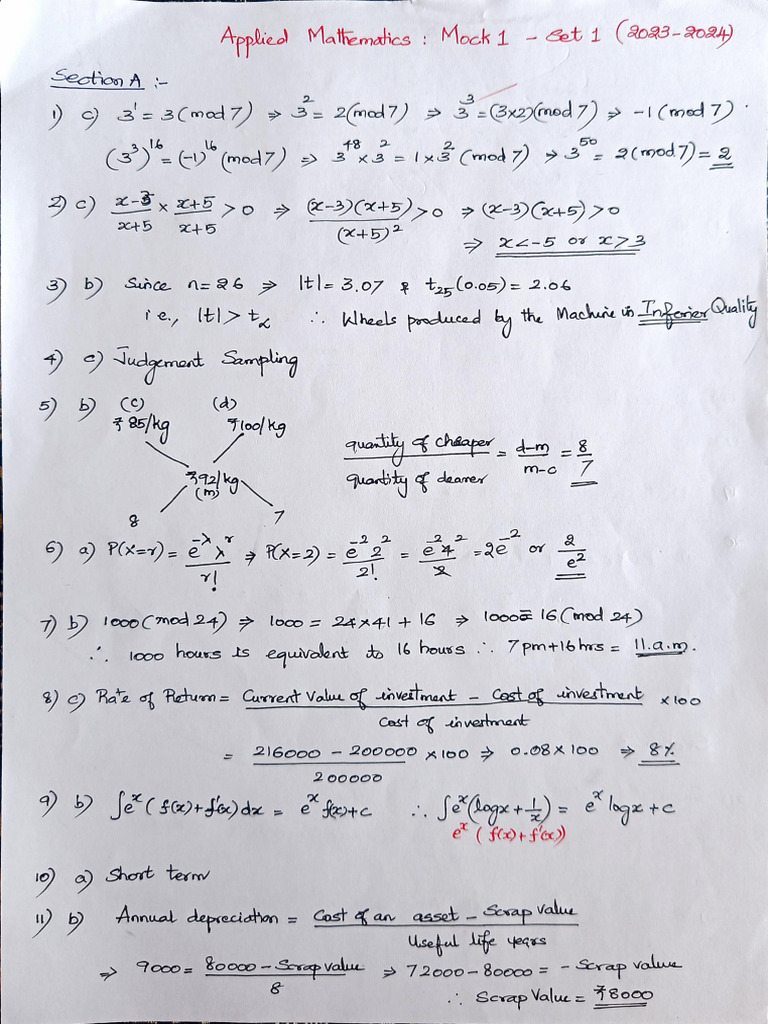 Applied Mathematics : Mock 1 - Set 1 (2023-2024)
Section A :-
1) c) 3¹ = 3(mod 7) ⇒ 3² = 2(mod 7) ⇒ 3³ = (3x2)(mod 7) ⇒ -1 (mod 7).
(3³)¹⁶ = (-1)¹⁶ (mod 7) ⇒ 3⁴⁸ x 3² = 1 x 3² (mod 7) ⇒ 3⁵⁰ = 2(mod 7) = 2
2) c) (x-3)/(x+5) × (x+5)/(x+5) > 0 ⇒ (x-3)(x+5)/(x+5)² > 0 ⇒ (x-3)(x+5) > 0
⇒ x<-5 or x>3
3) b) Since n=26 ⇒ |t| = 3.07 & t₂₅(0.05) = 2.06
i.e., |t| > t_α ∴ Wheels produced by the Machine is Inferier Quality
4) c) Judgement Sampling
5) b) (c) (d)
₹85/kg ₹100/kg
quantity of cheaper / quantity of dearer = d-m / m-c = 8/7
₹92/kg
(m)
8 7
6) a) P(X=r) = e^-λ λ^r / r! ⇒ P(X=2) = e^-2 2² / 2! = e^-2 4² / 2 = 2e^-2 or 2/e²
7) b) 1000(mod 24) ⇒ 1000 = 24x41 + 16 ⇒ 1000 ≡ 16(mod 24)
∴ 1000 hours is equivalent to 16 hours ∴ 7pm+16hrs = 11.a.m.
8) c) Rate of Return = Current Value of investment - Cost of investment / Cost of investment x100
= 216000 - 200000 / 200000 x100 ⇒ 0.08x100 ⇒ 8%
9) b) ∫e^x (f(x)+f'(x)dx = e^x f(x)+c ∴ ∫e^x(logx + 1/x) = e^x logx + c
e^x (f(x)+f'(x))
10) a) Short term
11) b) Annual depreciation = Cost of an asset - Scrap value / Useful life years
⇒ 9000 = 80000 - Scrap value / 8 ⇒ 72000-80000 = - Scrap value
∴ Scrap Value = ₹8000